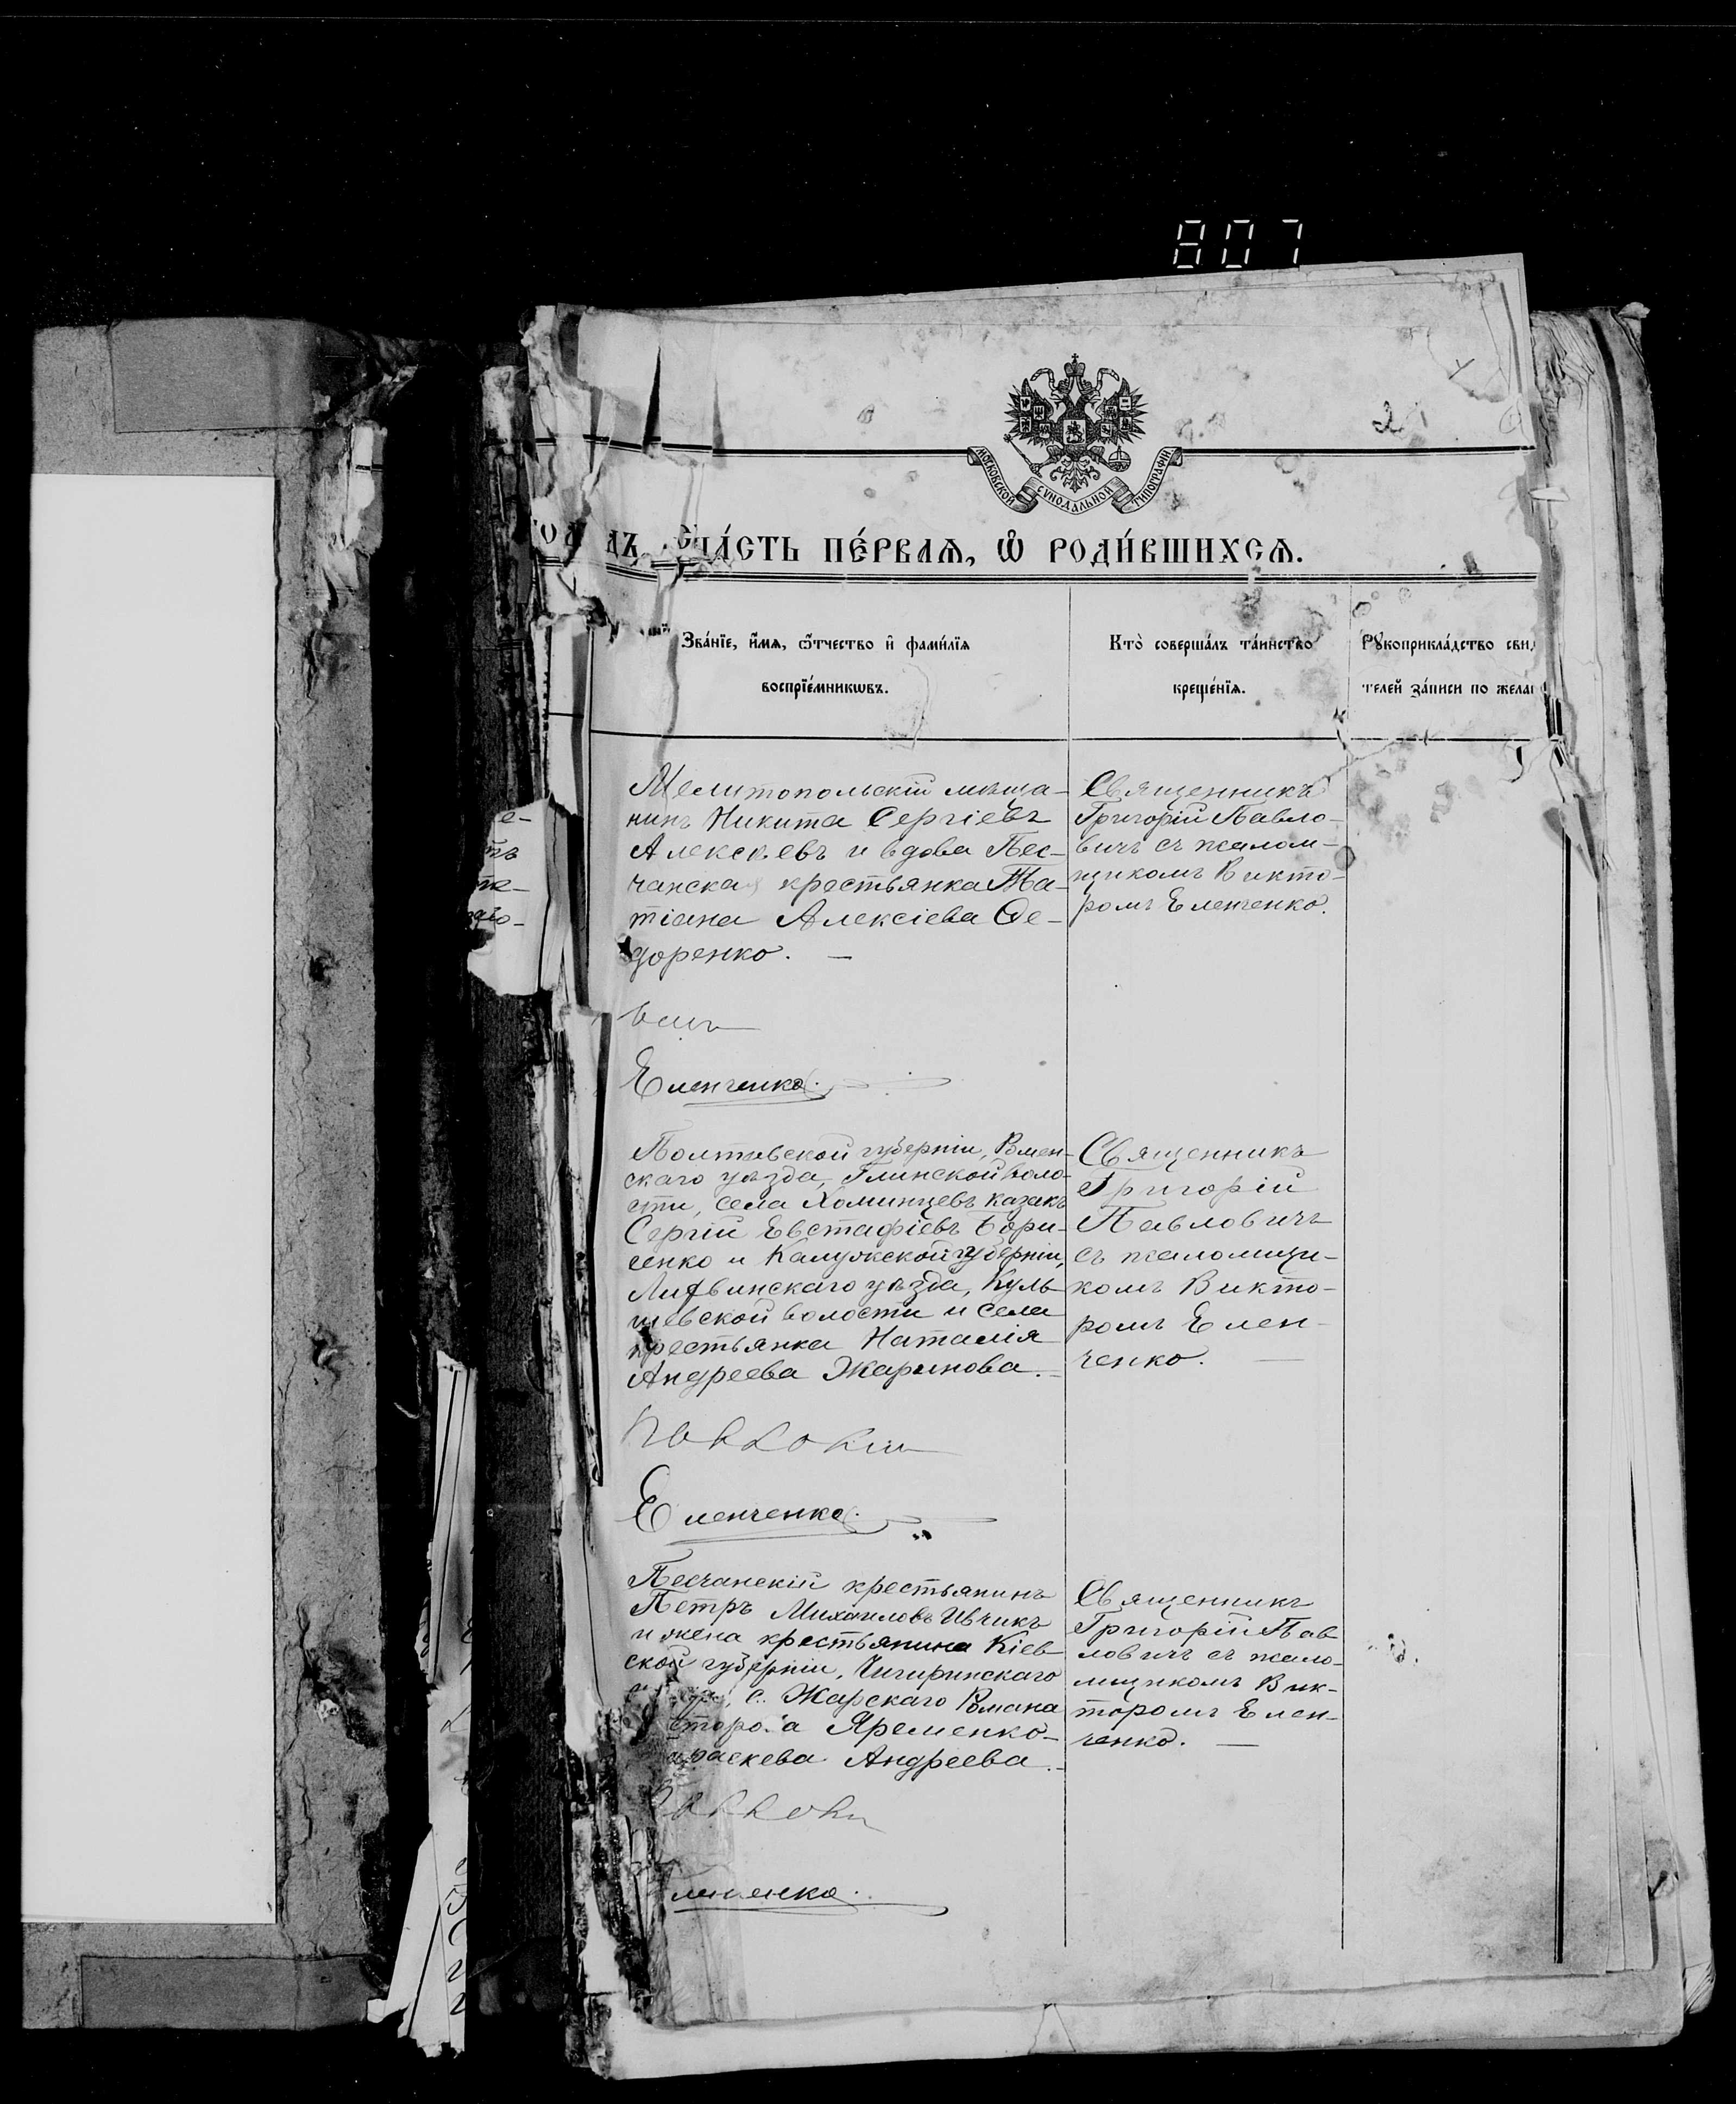 807
МОСКОВСКОЙ СѴНОДАЛЬНОЙ ТИПОГРАФІИ
2
ЧА́СТЬ ПЕ́РВАѦ, Ѡ҆ РОДИ́ВШИХСѦ.
Зва́нїе, и҆́мѧ, ѻ҆́тчество и҆ фами́лїѧ
воспрїе́мникѡвъ.
Кто̀ соверша́лъ та́инство
креще́нїѧ.
Рꙋкоприкла́дство свид
телей за́писи по жела
Мелитопольскій мѣща-
нинъ Никита Сергіевъ
Алексѣевъ и вдова Пес-
чанская крестьянка Та-
тіана Алексіева Ѳе-
доренко. —
Священникъ
Григорій Павло-
вичъ съ псалом-
щикомъ Викто-
ромъ Еленченко.
Еленченко.
Полтавской губерніи, Ромен-
скаго уѣзда, Глинской воло-
сти, села Хоминцевъ казакъ
Сергій Евстафіевъ Бори-
сенко и Калужской губерніи,
Лихвинскаго уѣзда, Куль-
шевской волости и села
крестьянка Наталія
Андреева Жаринова. —
Священникъ
Григорій
Павловичъ
съ псаломщи-
комъ Викто-
ромъ Елен-
ченко. —
Еленченко.
Песчанскій крестьянинъ
Петръ Михаиловъ Ивчикъ
и жена крестьянина Кіев-
ской губерніи, Чигиринскаго
с. Жарскаго Романа
Яременко-
Андреева. —
Священникъ
Григорій Пав
ловичъ съ псало-
мщикомъ Вик-
торомъ Елен-
ченко. —